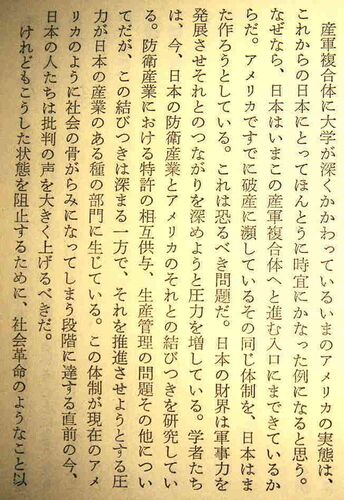 産軍複合体に大学が深くかかわっているいまのアメリカの実態は、
これからの日本にとってほんとうに時宜にかなった例になると思う。
なぜなら、日本はいまこの産軍複合体へと進む入口にまできているか
らだ。アメリカですでに破産に瀕しているその同じ体制を、日本はま
た作ろうとしている。これは恐るべき問題だ。日本の財界は軍事力を
発展させそれとのつながりを深めようと圧力を増している。学者たち
は、今、日本の防衛産業とアメリカのそれとの結びつきを研究してい
る。防衛産業における特許の相互供与、生産管理の問題その他につい
てだが、この結びつきは深まる一方で、それを推進させようとする圧
力が日本の産業のある種の部門に生じている。この体制が現在のアメ
リカのように社会の骨がらみになってしまう段階に達する直前の今、
日本の人たちは批判の声を大きく上げるべきだ。
けれどもこうした状態を阻止するために、社会革命のようなこと以